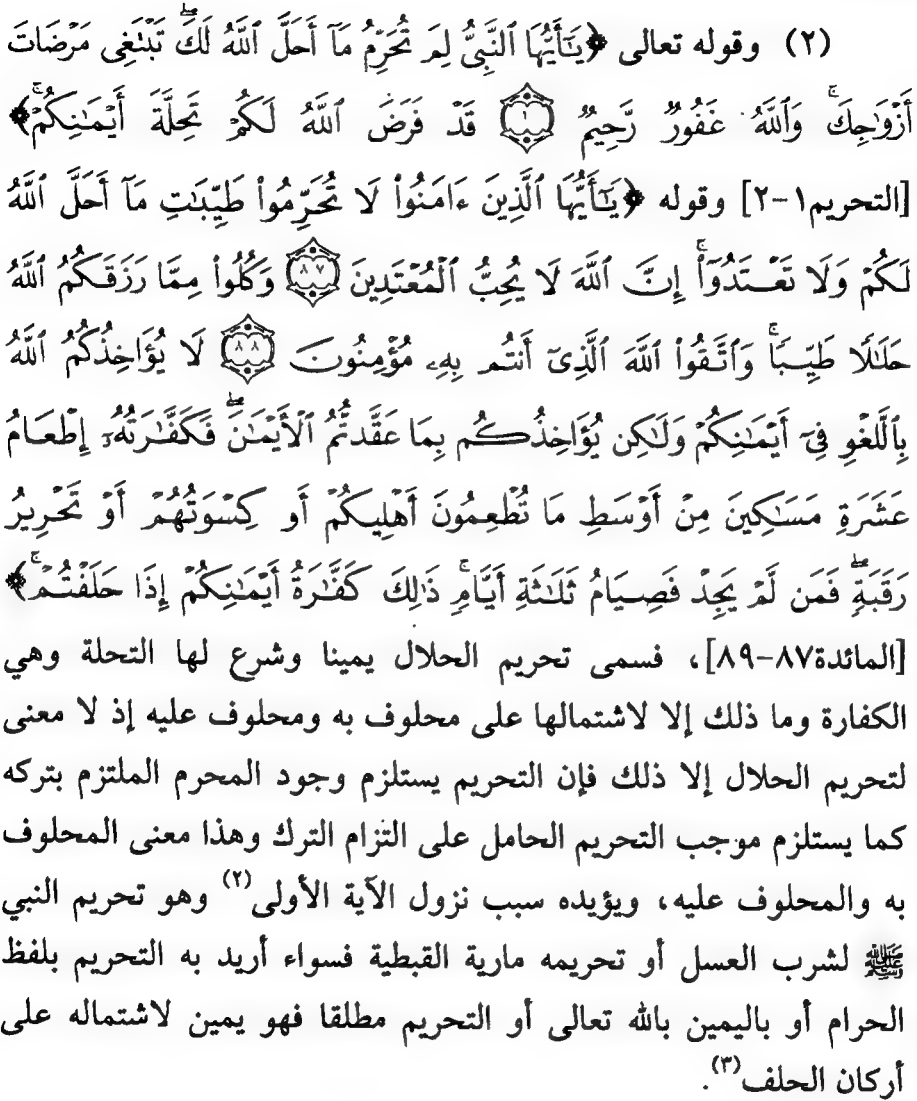 (٢) وقوله تعالى ﴿يَـٰٓأَيُّهَا ٱلنَّبِىُّ لِمَ تُحَرِّمُ مَآ أَحَلَّ ٱللَّهُ لَكَ ۖ تَبْتَغِى مَرْضَاتَ
أَزْوَٰجِكَ ۚ وَٱللَّهُ غَفُورٌ رَّحِيمٌ ۝١ قَدْ فَرَضَ ٱللَّهُ لَكُمْ تَحِلَّةَ أَيْمَـٰنِكُمْ ۚ﴾
[التحريم١-٢] وقوله ﴿يَـٰٓأَيُّهَا ٱلَّذِينَ ءَامَنُوا۟ لَا تُحَرِّمُوا۟ طَيِّبَـٰتِ مَآ أَحَلَّ ٱللَّهُ
لَكُمْ وَلَا تَعْـتَدُوٓا۟ ۚ إِنَّ ٱللَّهَ لَا يُحِبُّ ٱلْمُعْتَدِينَ ۝٨٧ وَكُلُوا۟ مِمَّا رَزَقَكُمُ ٱللَّهُ
حَلَـٰلًا طَيِّبًا ۚ وَٱتَّقُوا۟ ٱللَّهَ ٱلَّذِىٓ أَنتُم بِهِۦ مُؤْمِنُونَ ۝٨٨ لَا يُؤَاخِذُكُمُ ٱللَّهُ
بِٱللَّغْوِ فِىٓ أَيْمَـٰنِكُمْ وَلَـٰكِن يُؤَاخِذُكُم بِمَا عَقَّدتُّمُ ٱلْأَيْمَـٰنَ ۖ فَكَفَّـٰرَتُهُۥٓ إِطْعَامُ
عَشَرَةِ مَسَـٰكِينَ مِنْ أَوْسَطِ مَا تُطْعِمُونَ أَهْلِيكُمْ أَوْ كِسْوَتُهُمْ أَوْ تَحْرِيرُ
رَقَبَةٍ ۖ فَمَن لَّمْ يَجِدْ فَصِيَامُ ثَلَـٰثَةِ أَيَّامٍ ۚ ذَٰلِكَ كَفَّـٰرَةُ أَيْمَـٰنِكُمْ إِذَا حَلَفْتُمْ ۚ﴾
[المائدة٨٧-٨٩]، فسمى تحريم الحلال يمينا وشرع لها التحلة وهي
الكفارة وما ذلك إلا لاشتمالها على محلوف به ومحلوف عليه إذ لا معنى
لتحريم الحلال إلا ذلك فإن التحريم يستلزم وجود المحرم الملتزم بتركه
كما يستلزم موجب التحريم الحامل على التزام الترك وهذا معنى المحلوف
به والمحلوف عليه، ويؤيده سبب نزول الآية الأولى(٢) وهو تحريم النبي
ﷺ لشرب العسل أو تحريمه مارية القبطية فسواء أريد به التحريم بلفظ
الحرام أو باليمين بالله تعالى أو التحريم مطلقا فهو يمين لاشتماله على
أركان الحلف(٣).